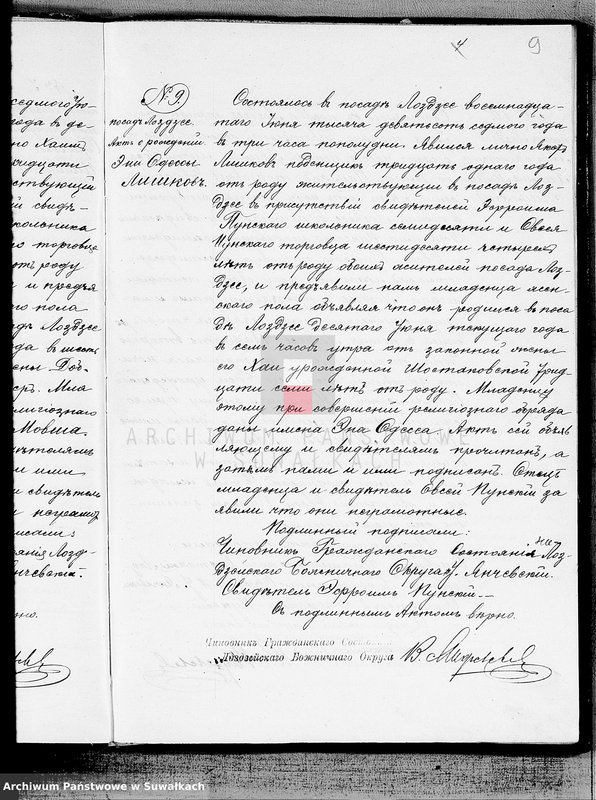 9
№ 9.
посадъ Лоздзее
Актъ о рожденіи
Эни Одессы
Лишковъ.
Состоялось въ посадѣ Лоздзее восемнадца-
таго Іюня тысяча девятьсотъ седьмого года
въ три часа пополудни. Явился лично
Лишковъ поденщикъ тридцать одного года
отъ роду жительствующій въ посадѣ Лоз-
дзее въ присутствіи свидѣтелей Эфроима
Пунскаго школьника семидесяти и Овсея
Пунскаго торговца шестидесяти четырехъ
лѣтъ отъ роду обоихъ жителей посада Лоз-
дзее, и предъявилъ намъ младенца жен-
скаго пола объявляя что онъ родился въ поса
дѣ Лоздзее десятаго Іюня текущаго года
въ семь часовъ утра отъ законной жены
его Хаи урожденной Шостаковской трид-
цати семи лѣтъ отъ роду. Младенцу
этому при совершеніи религіознаго обряда
даны имена Эна Одесса. Актъ сей объяв
ляющему и свидѣтелямъ прочитанъ, а
затѣмъ нами и ими подписанъ. Отецъ
младенца и свидѣтель Евсей Пунскій за
явили что они неграмотные.
Подлинный подписали:
Чиновникъ Гражданскаго Состоянія Лоз-
дзейскаго Божничнаго Округа У. Янчевскій.
Свидѣтель Эфроимъ Пунскій
Съ подлиннымъ Актомъ вѣрно.
Чиновникъ Гражданскаго Состоянія
Лоздзейскаго Божничнаго Округа
ARCHIWUM PAŃSTWOWE
W SUWAŁKACH
Archiwum Państwowe w Suwałkach